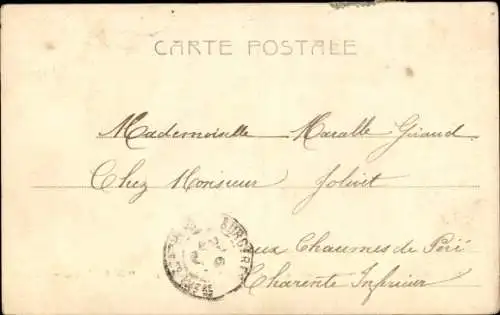 CARTE POSTALE
Mademoiselle Maralle Giraud
Chez Monsieur Jolivet
aux Chaumes de Péré
Charente Inférieur
SURGÈRES